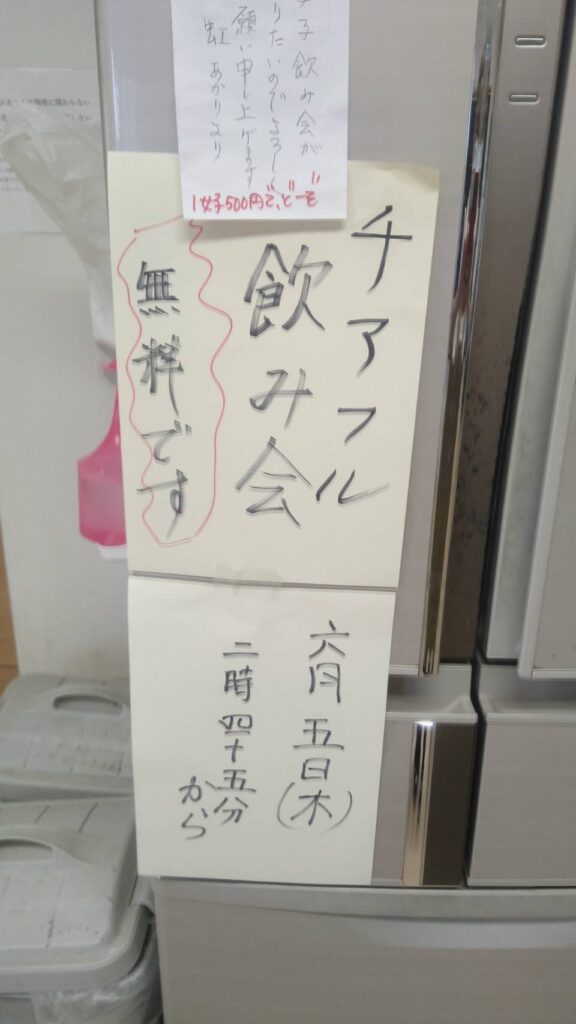 子飲み会が
りたいのでよろし
願い申し上げます
虹あかりより
1女子500円で、どーぞ
チアフル
飲み会
無料です
六月五日(木)
二時四十五分
から